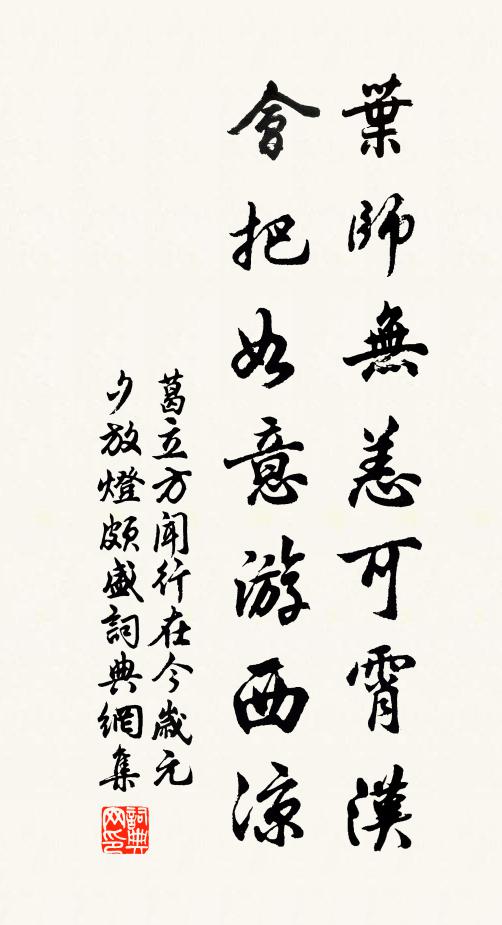 葉師無恙可霄漢
會把如意游西涼
葛立方聞行在今歲元
夕放燈頗盛詞典網集
詞典網印